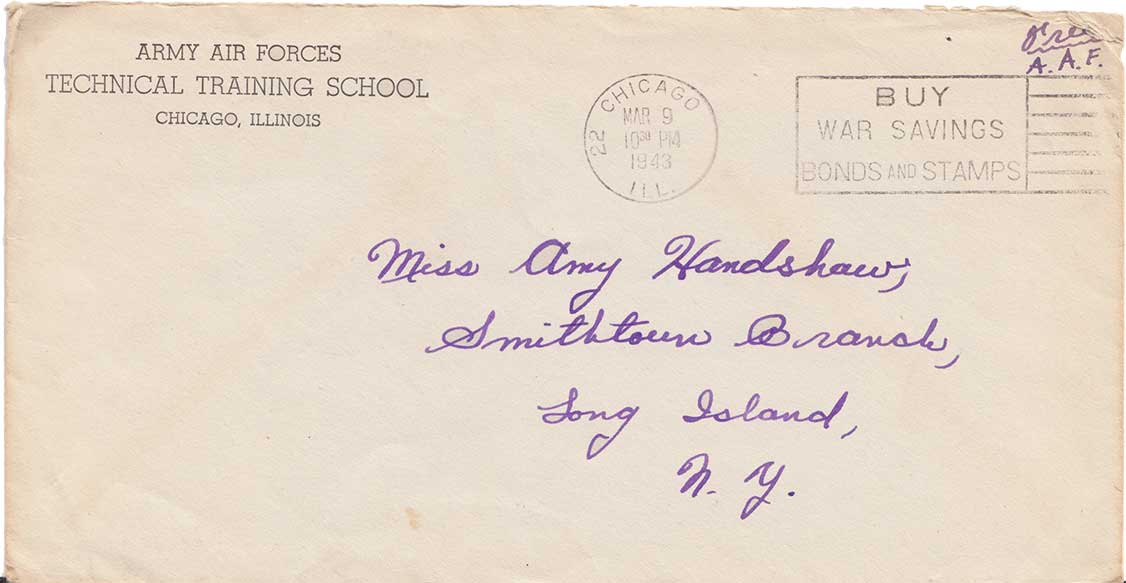 ARMY AIR FORCES
TECHNICAL TRAINING SCHOOL
CHICAGO, ILLINOIS
22 CHICAGO
MAR 9
10³⁰ PM
1943
ILL.
BUY
WAR SAVINGS
BONDS AND STAMPS
Free
A. A. F.
Miss Amy Handshaw,
Smithtown Branch,
Long Island,
N. Y.